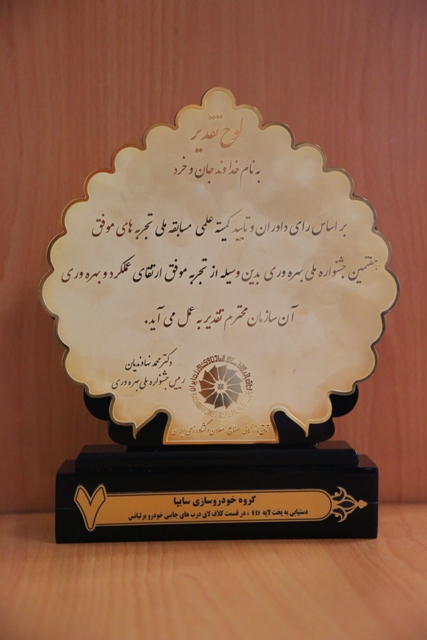 لوح تقدیر
به نام خداوند جان و خرد
بر اساس رای داوران و تایید کمیته علمی مسابقه ملی تجربه های موفق
هفتمین جشنواره ملی بهره وری بدین وسیله از تجربه موفق ارتقای عملکرد و بهره وری
آن سازمان محترم تقدیر به عمل می آید.
دکتر محمد نهاوندیان
رییس جشنواره ملی بهره وری
اتاق بازرگانی، صنایع، معادن و کشاورزی ایران
۷
گروه خودروسازی سایپا
دستیابی به پخت لایه ED ، در قسمت کلاف لای درب های جانبی خودرو برلیانس